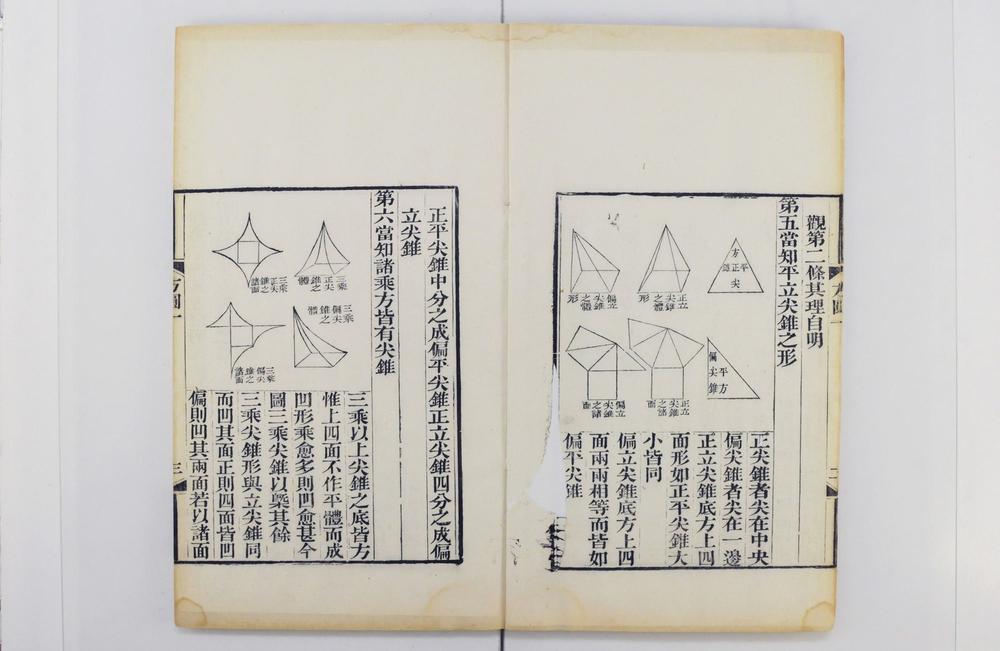 觀第二條其理自明
第五當知平立尖錐之形
平方正尖錐
正立尖錐之體形
偏立尖錐之體形
平方偏尖錐
正立尖錐之諸面
偏立尖錐之諸面
正尖錐者尖在中央
偏尖錐者尖在一邊
正立尖錐底方上四
面形如正平尖錐大
小皆同
偏立尖錐底方上四
面兩兩相等而皆如
偏平尖錐
正平尖錐中分之成偏平尖錐正立尖錐四分之成偏
立尖錐
第六當知諸乘方皆有尖錐
三乘正尖錐之體
三乘正尖錐之諸面
三乘偏尖錐之體
三乘偏尖錐之諸面
三乘以上尖錐之底皆方
惟上四面不作平體而成
凹形乘愈多則凹愈甚今
圖三乘尖錐以槩其餘
三乘尖錐形與立尖錐同
而凹其面正則四面皆凹
偏則凹其兩面若以諸面
方圓一
三